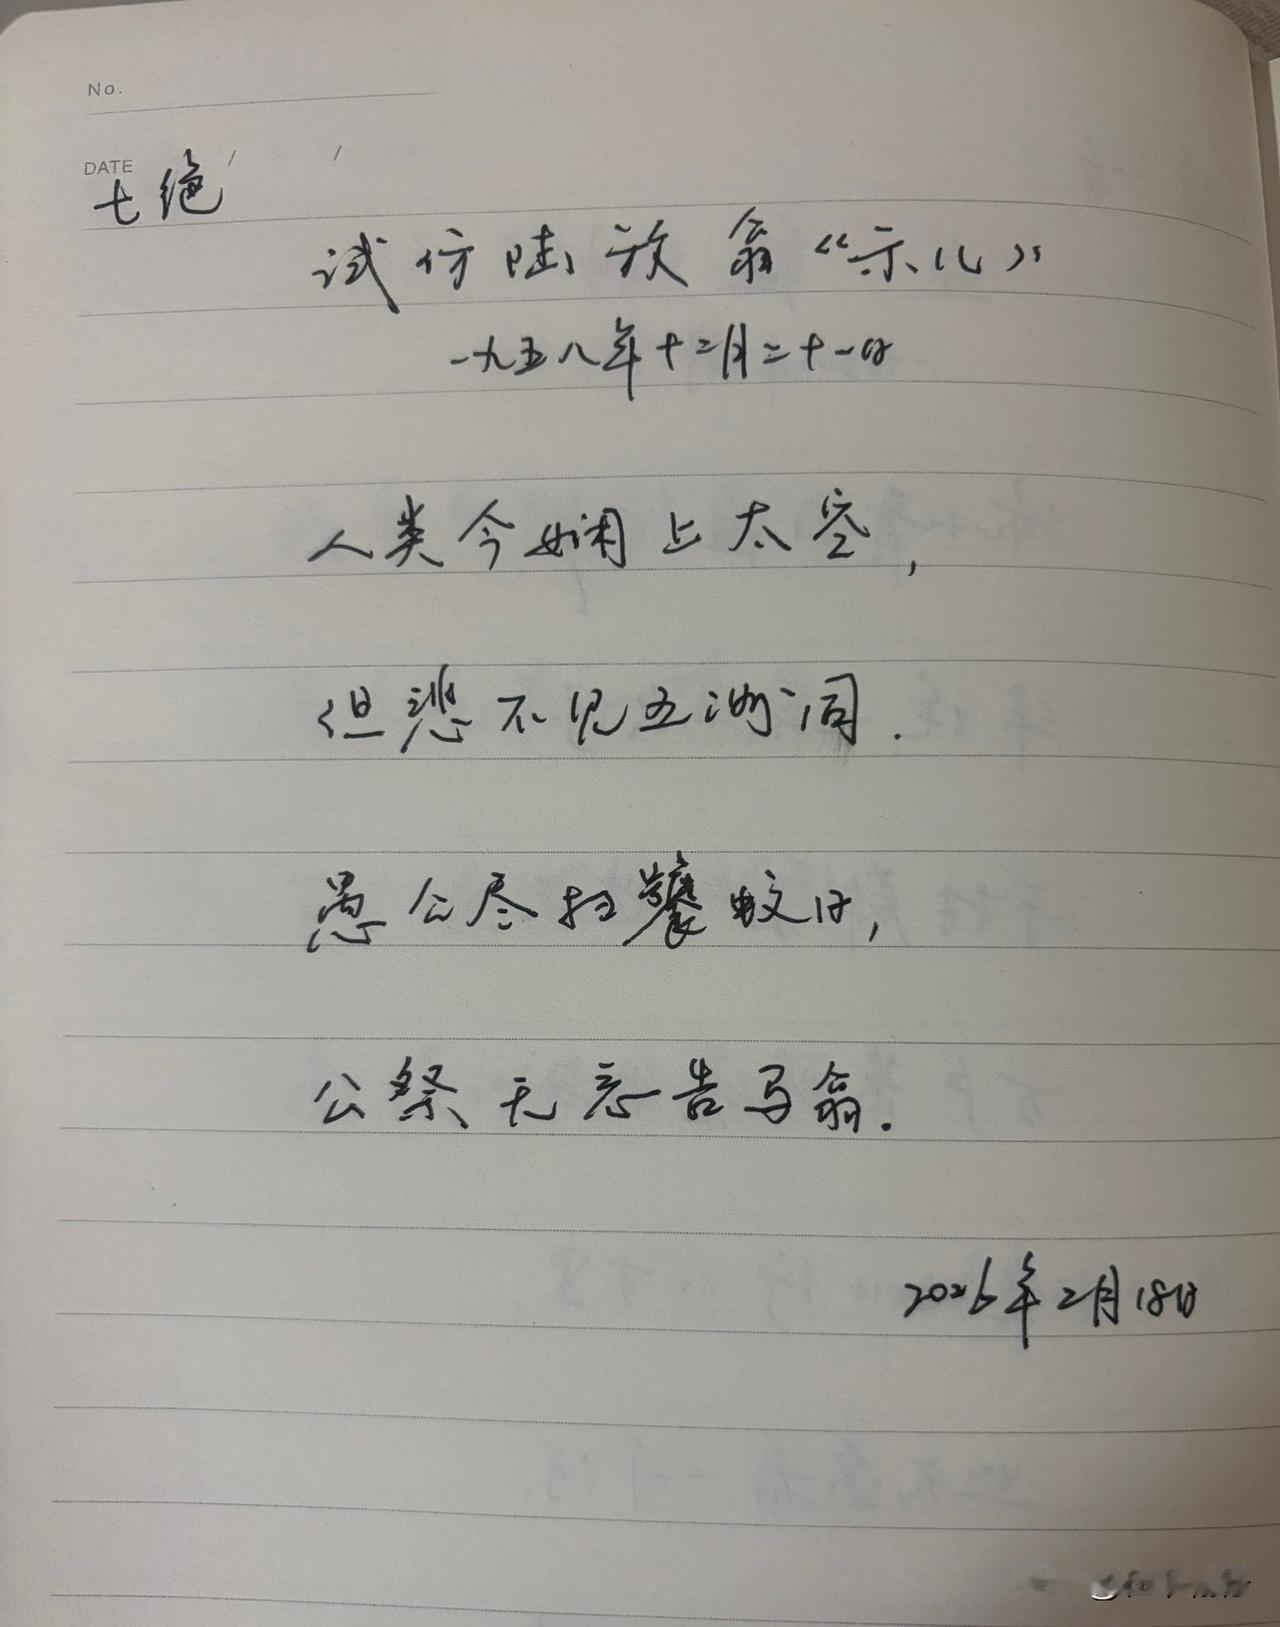 No.
DATE / /
七绝
试仿陆放翁“示儿”
一九五八年十二月二十一日
人类今娴上太空,
但悲不见五洲同.
愚公尽扫饕蚊日,
公祭无忘告马翁.
2026年2月18日